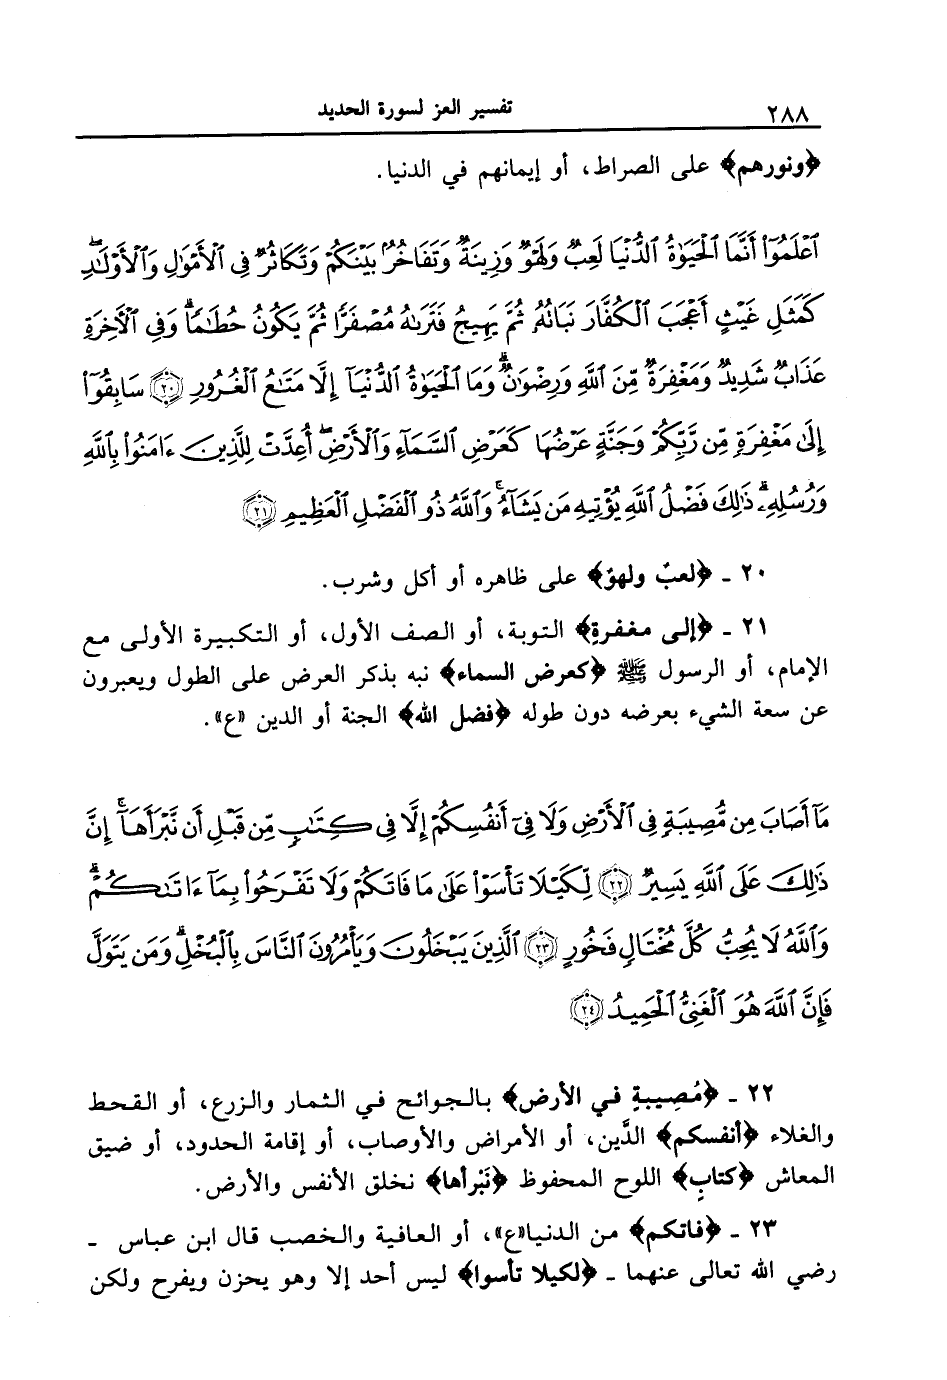 ٢٨٨ تفسير العز لسورة الحديد
﴿ونورهم﴾ على الصراط، أو إيمانهم في الدنيا.
ٱعْلَمُوٓا۟ أَنَّمَا ٱلْحَيَوٰةُ ٱلدُّنْيَا لَعِبٌ وَلَهْوٌ وَزِينَةٌ وَتَفَاخُرٌۢ بَيْنَكُمْ وَتَكَاثُرٌ فِى ٱلْأَمْوَٰلِ وَٱلْأَوْلَٰدِ ۖ
كَمَثَلِ غَيْثٍ أَعْجَبَ ٱلْكُفَّارَ نَبَاتُهُۥ ثُمَّ يَهِيجُ فَتَرَىٰهُ مُصْفَرًّا ثُمَّ يَكُونُ حُطَٰمًا ۖ وَفِى ٱلْءَاخِرَةِ
عَذَابٌ شَدِيدٌ وَمَغْفِرَةٌ مِّنَ ٱللَّهِ وَرِضْوَٰنٌ ۚ وَمَا ٱلْحَيَوٰةُ ٱلدُّنْيَآ إِلَّا مَتَٰعُ ٱلْغُرُورِ ﴿٢٠﴾ سَابِقُوٓا۟
إِلَىٰ مَغْفِرَةٍ مِّن رَّبِّكُمْ وَجَنَّةٍ عَرْضُهَا كَعَرْضِ ٱلسَّمَآءِ وَٱلْأَرْضِ أُعِدَّتْ لِلَّذِينَ ءَامَنُوا۟ بِٱللَّهِ
وَرُسُلِهِۦ ۚ ذَٰلِكَ فَضْلُ ٱللَّهِ يُؤْتِيهِ مَن يَشَآءُ ۚ وَٱللَّهُ ذُو ٱلْفَضْلِ ٱلْعَظِيمِ ﴿٢١﴾
٢٠ ـ ﴿لعبٌ ولهوٌ﴾ على ظاهره أو أكل وشرب.
٢١ ـ ﴿إلى مغفرةٍ﴾ التوبة، أو الصف الأول، أو التكبيرة الأولى مع
الإمام، أو الرسول ﷺ ﴿كعرض السماء﴾ نبه بذكر العرض على الطول ويعبرون
عن سعة الشيء بعرضه دون طوله ﴿فضل الله﴾ الجنة أو الدين «ع».
مَآ أَصَابَ مِن مُّصِيبَةٍ فِى ٱلْأَرْضِ وَلَا فِىٓ أَنفُسِكُمْ إِلَّا فِى كِتَٰبٍ مِّن قَبْلِ أَن نَّبْرَأَهَآ ۚ إِنَّ
ذَٰلِكَ عَلَى ٱللَّهِ يَسِيرٌ ﴿٢٢﴾ لِّكَيْلَا تَأْسَوْا۟ عَلَىٰ مَا فَاتَكُمْ وَلَا تَفْرَحُوا۟ بِمَآ ءَاتَىٰكُمْ ۗ
وَٱللَّهُ لَا يُحِبُّ كُلَّ مُخْتَالٍ فَخُورٍ ﴿٢٣﴾ ٱلَّذِينَ يَبْخَلُونَ وَيَأْمُرُونَ ٱلنَّاسَ بِٱلْبُخْلِ ۗ وَمَن يَتَوَلَّ
فَإِنَّ ٱللَّهَ هُوَ ٱلْغَنِىُّ ٱلْحَمِيدُ ﴿٢٤﴾
٢٢ ـ ﴿مُصِيبةٍ في الأرض﴾ بالجوائح في الثمار والزرع، أو القحط
والغلاء ﴿أنفسكم﴾ الدَّين، أو الأمراض والأوصاب، أو إقامة الحدود، أو ضيق
المعاش ﴿كتابٍ﴾ اللوح المحفوظ ﴿نَبْرأها﴾ نخلق الأنفس والأرض.
٢٣ ـ ﴿فاتكم﴾ من الدنيا«ع»، أو العافية والخصب قال ابن عباس ـ
رضي الله تعالى عنهما ـ ﴿لكيلا تأسوا﴾ ليس أحد إلا وهو يحزن ويفرح ولكن